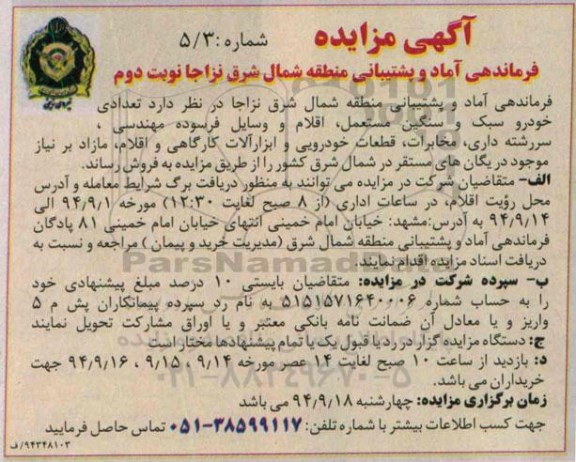 آگهی مزایده
شماره: ۵/۳
فرماندهی آماد و پشتیبانی منطقه شمال شرق نزاجا نوبت دوم
فرماندهی آماد و پشتیبانی منطقه شمال شرق نزاجا در نظر دارد تعدادی
خودرو سبک و سنگین مستعمل، اقلام و وسایل فرسوده مهندسی ،
سررشته داری، مخابرات، قطعات خودرویی و ابزارآلات کارگاهی و اقلام، مازاد بر نیاز
موجود در یگان های مستقر در شمال شرق کشور را از طریق مزایده به فروش رساند.
الف- متقاضیان شرکت در مزایده می توانند به منظور دریافت برگ شرایط معامله و آدرس
محل رؤیت اقلام، در ساعات اداری (از ۸ صبح لغایت ۱۲:۳۰) مورخه ۹۴/۹/۱ الی
۹۴/۹/۱۴ به آدرس:مشهد: خیابان امام خمینی انتهای خیابان امام خمینی ۸۱ پادگان
فرماندهی آماد و پشتیبانی منطقه شمال شرق (مدیریت خرید و پیمان ) مراجعه و نسبت به
دریافت اسناد مزایده اقدام نمایند
ب- سپرده شرکت در مزایده: متقاضیان بایستی ۱۰ درصد مبلغ پیشنهادی خود
را به حساب شماره ۵۱۵۱۵۷۱۶۴۰۰۰۶ به نام رد سپرده پیمانکاران پش م ۵
واریز و یا معادل آن ضمانت نامه بانکی معتبر و یا اوراق مشارکت تحویل نمایند
ج: دستگاه مزایده گزار در رد یا قبول یک یا تمام پیشنهادها مختار است
د: بازدید از ساعت ۱۰ صبح لغایت ۱۴ عصر مورخه ۹/۱۴ ، ۹/۱۵ ، ۹۴/۹/۱۶ جهت
خریداران می باشد.
زمان برگزاری مزایده: چهارشنبه ۹۴/۹/۱۸ می باشد
جهت کسب اطلاعات بیشتر با شماره تلفن: ۳۸۵۹۹۱۱۷-۰۵۱ تماس حاصل فرمایید
۹۴۳۴۸۱۰۳/ف
ParsNamadData
۰۲۱-۸۸۳۴۹۶۷۰-۵